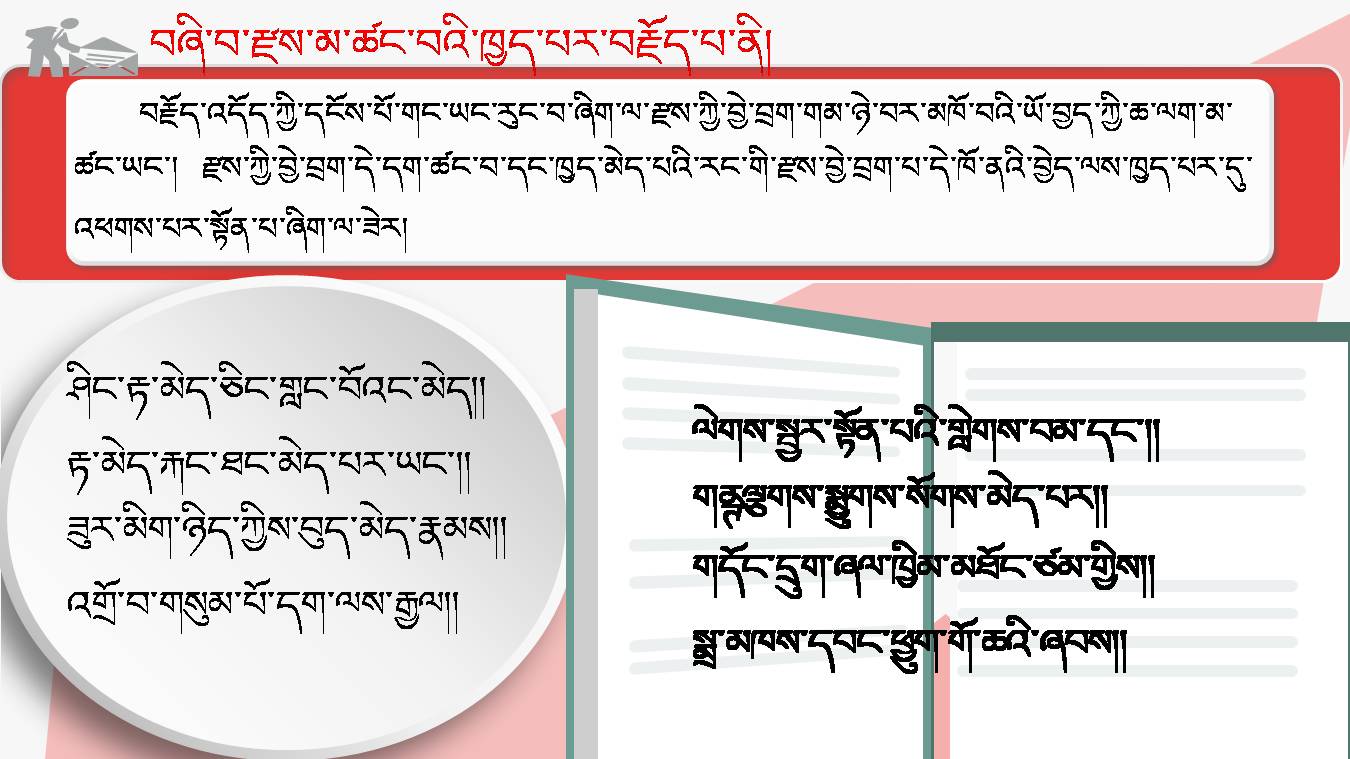 བཞི་བ་རྫས་མ་ཚང་བའི་ཁྱད་པར་བརྗོད་པ་ནི།
བརྗོད་འདོད་ཀྱི་དངོས་པོ་གང་ཡང་རུང་བ་ཞིག་ལ་རྫས་ཀྱི་བྱེ་བྲག་གམ་ཉེ་བར་མཁོ་བའི་ཡོ་བྱད་ཀྱི་ཆ་ལག་མ་
ཚང་ཡང་། རྫས་ཀྱི་བྱེ་བྲག་དེ་དག་ཚང་བ་དང་ཁྱད་མེད་པའི་རང་གི་རྫས་བྱེ་བྲག་པ་དེ་ཁོ་ནའི་བྱེད་ལས་ཁྱད་པར་དུ་
འཕགས་པར་སྟོན་པ་ཞིག་ལ་ཟེར།
ཤིང་རྟ་མེད་ཅིང་གླང་པོའང་མེད།།
རྟ་མེད་རྐང་ཐང་མེད་པར་ཡང་།།
ཟུར་མིག་ཉིད་ཀྱིས་བུད་མེད་རྣམས།།
འགྲོ་བ་གསུམ་པོ་དག་ལས་རྒྱལ།།
ལེགས་སྦྱར་སྟོན་པའི་གླེགས་བམ་དང་།།
གནྡྷ་ལྕགས་སྨྱུགས་སོགས་མེད་པར།།
གདོང་དྲུག་ཞལ་ཁྱིམ་མཐོང་ཙམ་གྱིས།།
སྨྲ་མཁས་དབང་ཕྱུག་གོ་ཆའི་ཞབས།།